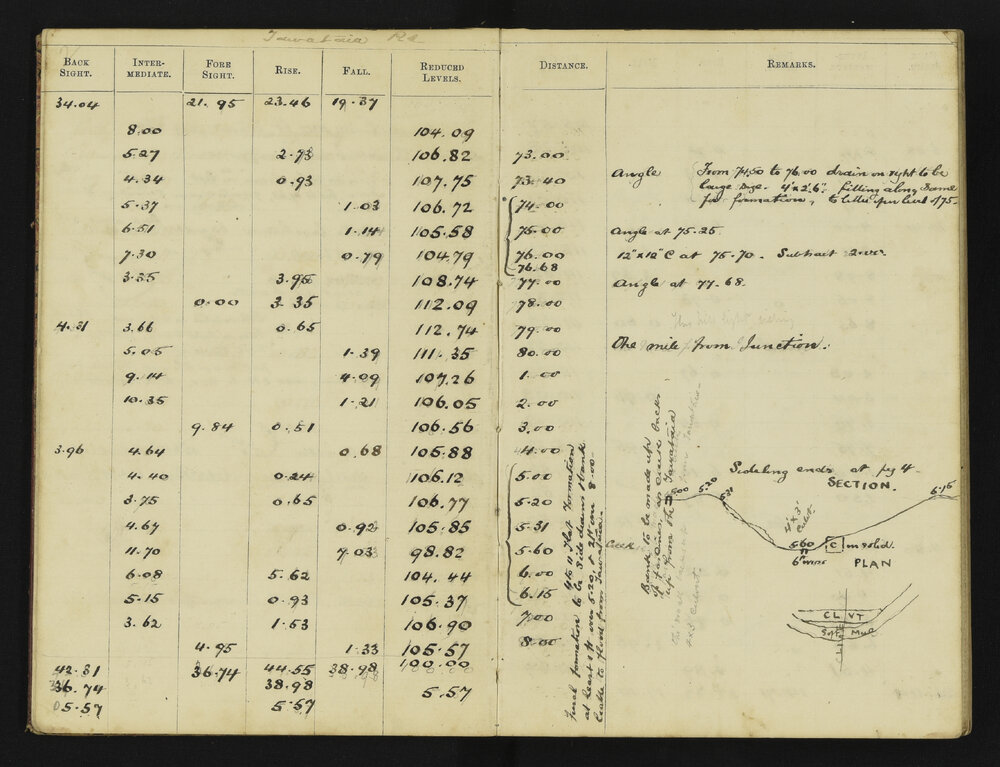 Tawataia Rd
BACK SIGHT. INTER-MEDIATE. FORE SIGHT. RISE. FALL. REDUCED LEVELS. DISTANCE. REMARKS.
34.04 21.95 23.46 19.37
8.00 104.09
5.27 2.73 106.82 73.00
4.34 0.93 107.75 73.40 Angle (From 74.50 to 76.00 drain on right to be
large size. 4'x2'6". filling along same
for formation,
5.37 1.03 106.72 74.00
6.51 1.14 105.58 75.00 Angle at 75.25
7.30 0.79 104.79 76.00 12"x12" C at 75.70. Subtract
76.68
3.35 3.95 108.74 77.00 Angle at 77.68.
0.00 3.35 112.09 78.00
4.31 3.66 0.65 112.74 79.00
5.05 1.39 111.35 80.00 One mile from Junction.
9.14 4.09 107.26 1.00
10.35 1.21 106.05 2.00
9.84 0.51 106.56 3.00
3.96 4.64 0.68 105.88 4.00
4.40 0.24 106.12 5.00
3.75 0.65 106.77 5.20
4.67 0.92 105.85 5.31
11.70 7.03 98.82 5.60 Creek
6.08 5.62 104.44 6.00
5.15 0.93 105.37 6.15
3.62 1.53 106.90 7.00
4.95 1.33 105.57 8.00
42.31 36.74 44.55 38.98 100.00
36.74 38.98 5.57
05.57 5.57
4 to 11 Flat Formation
Finish formation to be side drains & bank
at least 1 ft over 5.20 & 2 ft over 8.00
liable to flood from Tawataia.
Bank to be made up
up from the Tawataia
Sideling ends at peg 4
SECTION.
5.00 5.20 5.31 6.15
4'x3'
Culvt.
5.60 C in solid.
6" over PLAN
CL VT
Soft Mud